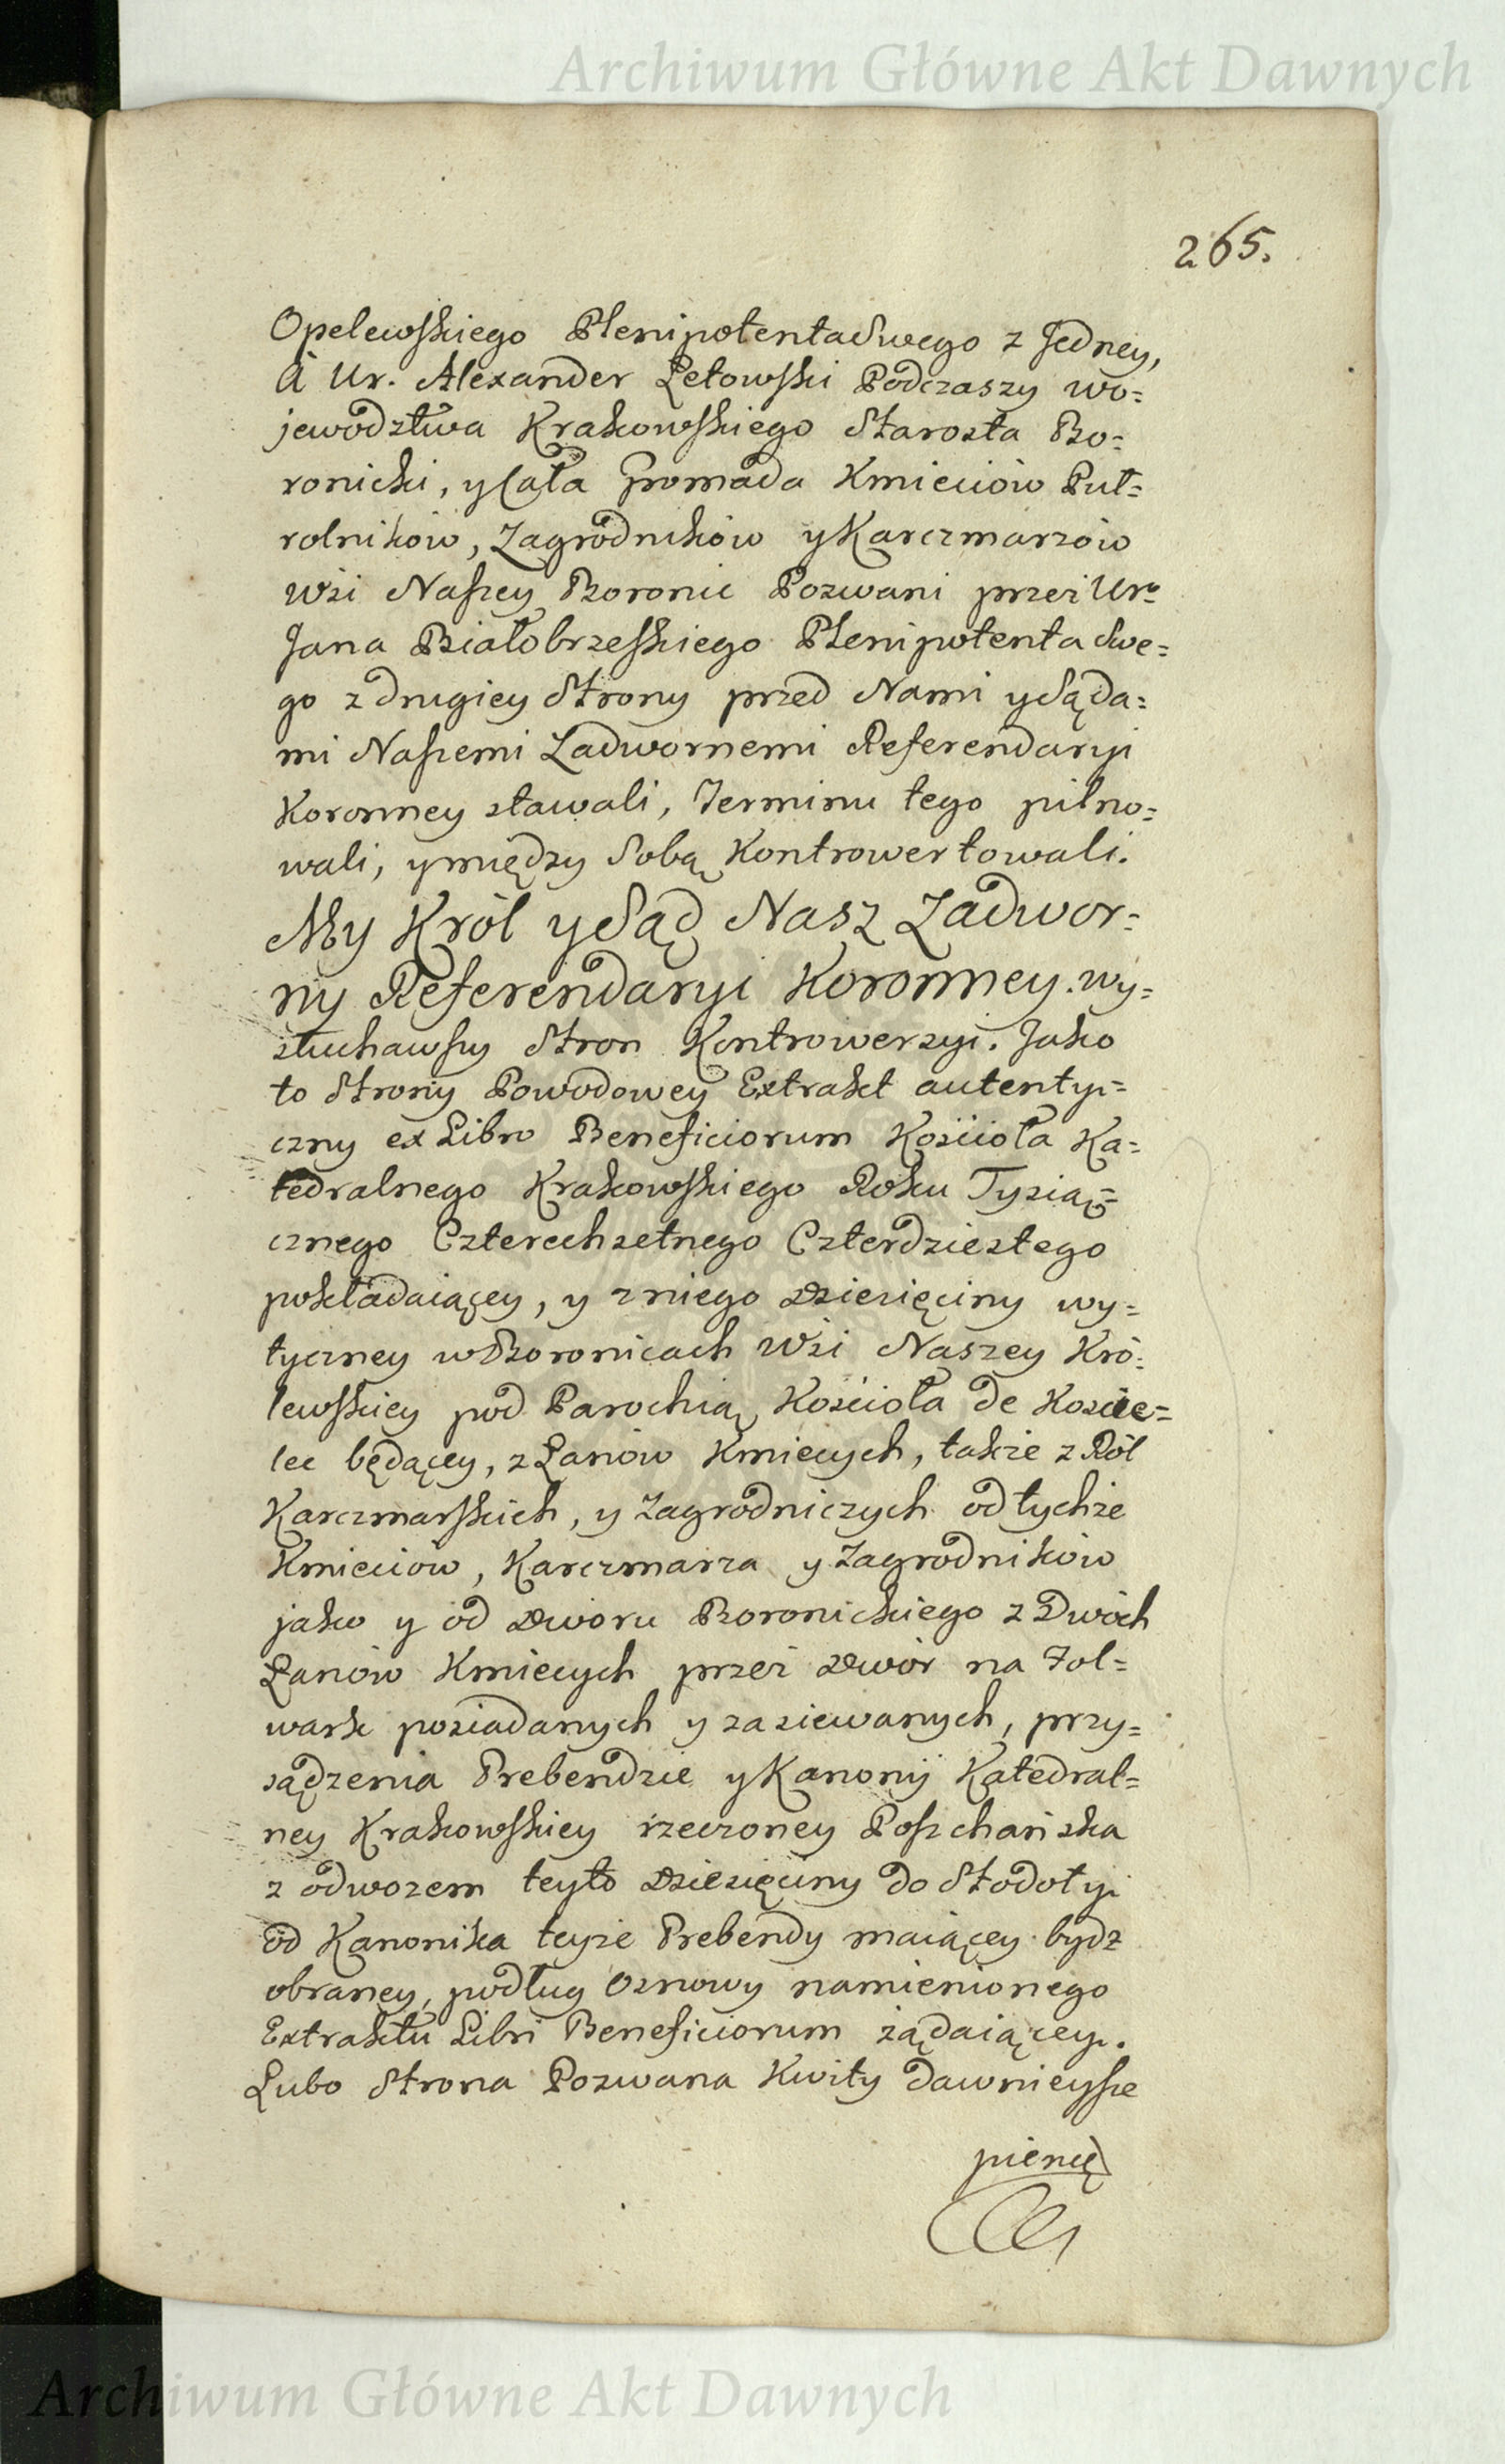 Archiwum Główne Akt Dawnych
265.
Opelewskiego Plenipotenta Swego z Jedney,
A Ur. Alexander Łętowski Podczaszy wo=
jewodztwa Krakowskiego Starosta Bo=
ronicki, y Cała Gromada Kmieciów Puł=
rolników, Zagrodników y Karczmarzów
Wsi Naszey Boronic Pozwani przez Ur.
Jana Białobrzeskiego Plenipotenta Swe=
go z drugiey Strony przed Nami y Sąda=
mi Naszemi Zadwornemi Referendaryi
Koronney stawali, Terminu tego pilno=
wali, y między Sobą Kontrowertowali.
My Król y Sąd Nasz Zadwor=
ny Referendaryi Koronney. wy=
słuchawszy Stron Kontrowersyi. Jako
to Strony Powodowey Extrakt autenty=
czny ex Libro Beneficiorum Kościoła Ka=
tedralnego Krakowskiego Roku Tysiąc=
cznego Czterechsetnego Czterdziestego
pokładaiącey, y z niego Dziesięciny wy=
tyczney w Boronicach Wsi Naszey Kró=
lewskiey pod Parochią Kościoła de Koscie=
lec będącey, z Łanów Kmiecych, także z Ról
Karczmarskich, y Zagrodniczych od tychże
Kmieciów, Karczmarza y Zagrodników
jako y od Dworu Boronickiego z Dwóch
Łanów Kmiecych przez Dwór na Fol=
wark posiadanych y zasiewanych, przy=
sądzenia Prebendzie y Kanonij Katedral=
ney Krakowskiey rzeczoney Poszchańska
z odwozem teyto Dziesięciny do Stodoły
od Kanonika teyże Prebendy maiącey bydz
obraney, podług Osnowy namienionego
Extraktu Libri Beneficiorum żądaiącey.
Lubo Strona Pozwana Kwity dawnieysze
pienię
Archiwum Główne Akt Dawnych